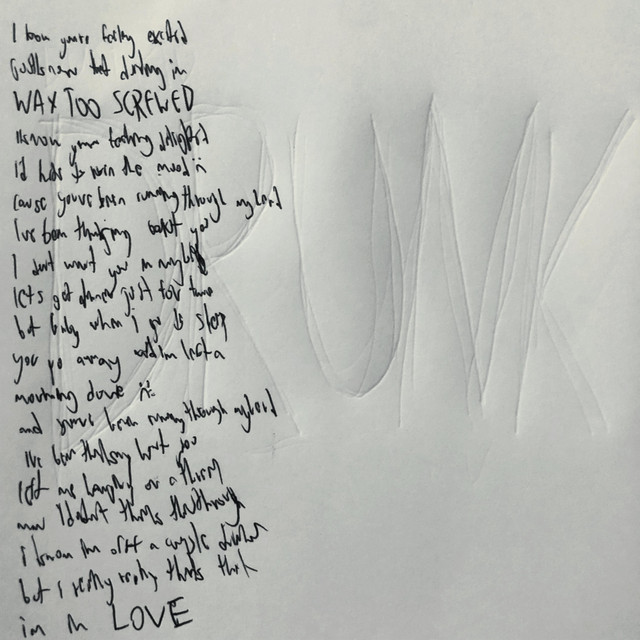 I know youre feeling excited
that driving in
WAY TOO SCREWED
know your feeling delighted
I'd hate to ruin the mood
cause youve been running through my head
Ive been thinking bout you
I dont want you in my
lets get dinner just for two
but baby when i go to sleep
you go away and im left a
mourning dove
and youve been running through my head
ive been thinking bout you
left me hanging on a thread
man I didnt think this through
i know im off a couple drinks
but i really really think that
im in LOVE
DRUNK